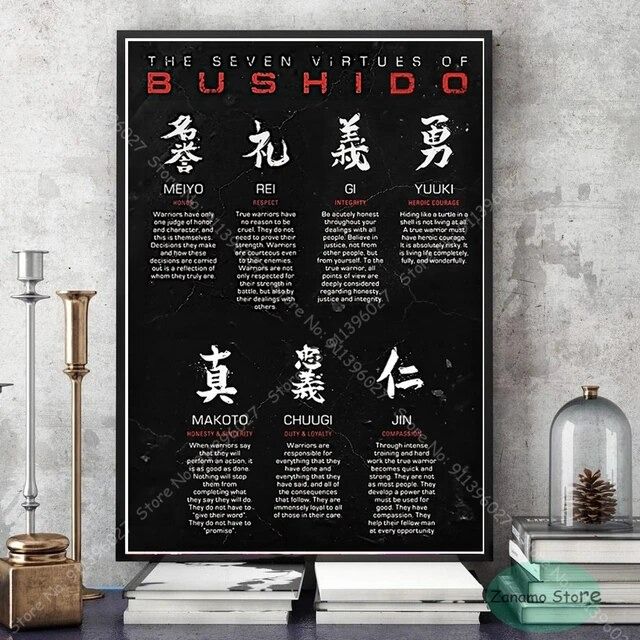 THE SEVEN VIRTUES OF
BUSHIDO
名誉
礼
義
勇
MEIYO
REI
GI
YUUKI
HONOR
RESPECT
INTEGRITY
HEROIC COURAGE
Warriors have only
one judge of honor
and character, and
this is themselves.
Decisions they make
and how these
decisions are carried
out is a reflection of
whom they truly are.
True warriors have
no reason to be
cruel. They do not
need to prove their
strength. Warriors
are courteous even
to their enemies.
Warriors are not
only respected for
their strength in
battle, but also by
their dealings with
others.
Be acutely honest
throughout your
dealings with all
people. Believe in
justice, not from
other people, but
from yourself. To the
true warrior, all
points of view are
deeply considered
regarding honesty,
justice and integrity.
Hiding like a turtle in a
shell is not living at all.
A true warrior must
have heroic courage.
It is absolutely risky. It
is living life completely,
and wonderfully.
真
忠義
仁
MAKOTO
CHUUGI
JIN
HONESTY & SINCERITY
DUTY & LOYALTY
COMPASSION
When warriors say
that they will
perform an action, it
is as good as done.
Nothing will stop
them from
completing what
they say they will do.
They do not have to
"give their word".
They do not have to
"promise".
Warriors are
responsible for
everything that they
have done and
everything that they
have said, and all of
the consequences
that follow. They are
immensely loyal to all
of those in their care.
Through intense
training and hard
work the true warrior
becomes quick and
strong. They are not
as most people. They
develop a power that
must be used for
good. They have
compassion. They
help their fellow man
at every opportunity
Store No: 911396027
Zanamo Store